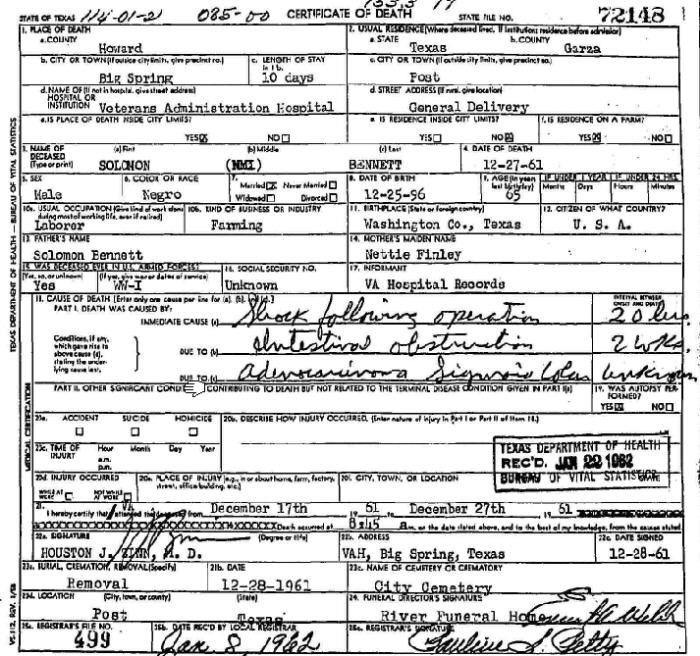 STATE OF TEXAS 114-01-2 085-00 CERTIFICATE OF DEATH STATE FILE NO. 72148
1. PLACE OF DEATH 2. USUAL RESIDENCE (Where deceased lived. If institution: residence before admission)
a. COUNTY a. STATE b. COUNTY
Howard Texas Garza
b. CITY OR TOWN (If outside city limits, give precinct no.) c. LENGTH OF STAY in 1b. c. CITY OR TOWN (If outside city limits, give precinct no.)
Big Spring 10 days Post
d. NAME OF (If not in hospital, give street address) HOSPITAL OR INSTITUTION d. STREET ADDRESS (If rural, give location)
Veterans Administration Hospital General Delivery
e. IS PLACE OF DEATH INSIDE CITY LIMITS? e. IS RESIDENCE INSIDE CITY LIMITS? f. IS RESIDENCE ON A FARM?
YES X NO YES NO X YES X NO
3. NAME OF DECEASED (Type or print) (a) First (b) Middle (c) Last 4. DATE OF DEATH
SOLOMON (NMI) BENNETT 12-27-61
5. SEX 6. COLOR OR RACE 7. Married X Never Married Widowed Divorced 8. DATE OF BIRTH 9. AGE (In years last birthday) IF UNDER 1 YEAR IF UNDER 24 HRS.
Months Days Hours Minutes
Male Negro 12-25-96 65
10a. USUAL OCCUPATION (Give kind of work done during most of working life, even if retired) 10b. KIND OF BUSINESS OR INDUSTRY 11. BIRTHPLACE (State or foreign country) 12. CITIZEN OF WHAT COUNTRY?
Laborer Farming Washington Co., Texas U. S. A.
13. FATHER'S NAME 14. MOTHER'S MAIDEN NAME
Solomon Bennett Nettie Finley
15. WAS DECEASED EVER IN U.S. ARMED FORCES? 16. SOCIAL SECURITY NO. 17. INFORMANT
(Yes, no, or unknown) (If yes, give war or dates of service)
Yes WW-I Unknown VA Hospital Records
18. CAUSE OF DEATH [Enter only one cause per line for (a), (b), and (c).] INTERVAL BETWEEN ONSET AND DEATH
PART I. DEATH WAS CAUSED BY:
IMMEDIATE CAUSE (a) Shock following operation 20 hrs
Conditions, if any, which gave rise to above cause (a), stating the underlying cause last.
DUE TO (b) Intestinal obstruction 2 wks.
DUE TO (c) Adenocarcinoma Sigmoid Colon unknown
PART II. OTHER SIGNIFICANT CONDITIONS CONTRIBUTING TO DEATH BUT NOT RELATED TO THE TERMINAL DISEASE CONDITION GIVEN IN PART I(a) 19. WAS AUTOPSY PERFORMED?
YES X NO
20a. ACCIDENT SUICIDE HOMICIDE 20b. DESCRIBE HOW INJURY OCCURRED. (Enter nature of injury in Part I or Part II of item 18.)
20c. TIME OF INJURY Hour Month Day Year
a.m.
p.m.
TEXAS DEPARTMENT OF HEALTH
REC'D. JAN 22 1962
BUREAU OF VITAL STATISTICS
20d. INJURY OCCURRED 20e. PLACE OF INJURY (e.g., in or about home, farm, factory, street, office building, etc.) 20f. CITY, TOWN, OR LOCATION
WHILE AT WORK NOT WHILE AT WORK
21. I hereby certify that VA attended the deceased from December 17th 19 61 December 27th 19 61
Death occurred at 8:45 a m. on the date stated above, and to the best of my knowledge, from the causes stated
22a. SIGNATURE (Degree or title) 22b. ADDRESS 22c. DATE SIGNED
HOUSTON J. ZINN, M. D. VAH, Big Spring, Texas 12-28-61
23a. BURIAL, CREMATION, REMOVAL (Specify) 23b. DATE 23c. NAME OF CEMETERY OR CREMATORY
Removal 12-28-1961 City Cemetery
23d. LOCATION (City, town, or county) (State) 24. FUNERAL DIRECTOR'S SIGNATURE
Post Texas River Funeral Home
25a. REGISTRAR'S FILE NO. 25b. DATE REC'D BY LOCAL REGISTRAR 25c. REGISTRAR'S SIGNATURE
499 Jan 8, 1962 Pauline S. Petty
TEXAS DEPARTMENT OF HEALTH — BUREAU OF VITAL STATISTICS
MEDICAL CERTIFICATION